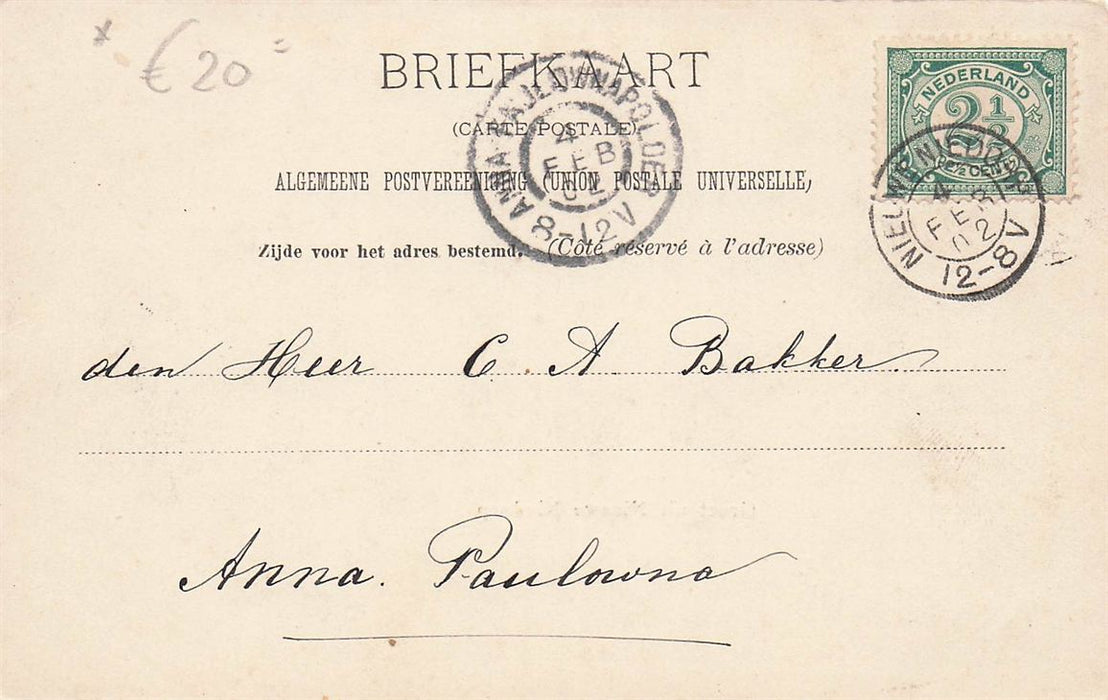 € 20 =
BRIEFKAART
(CARTE POSTALE)
ALGEMEENE POSTVEREENIGING (UNION POSTALE UNIVERSELLE)
Zijde voor het adres bestemd. (Côté réservé à l'adresse)
NEDERLAND
2½
2½ CENT
ANNA-PAULOWNAPOLDER
4
FEB
02
8-12V
NIEUWE NIEDORP
4
FEB
02
12-8V
den Heer C A Bakker.
Anna. Paulowna